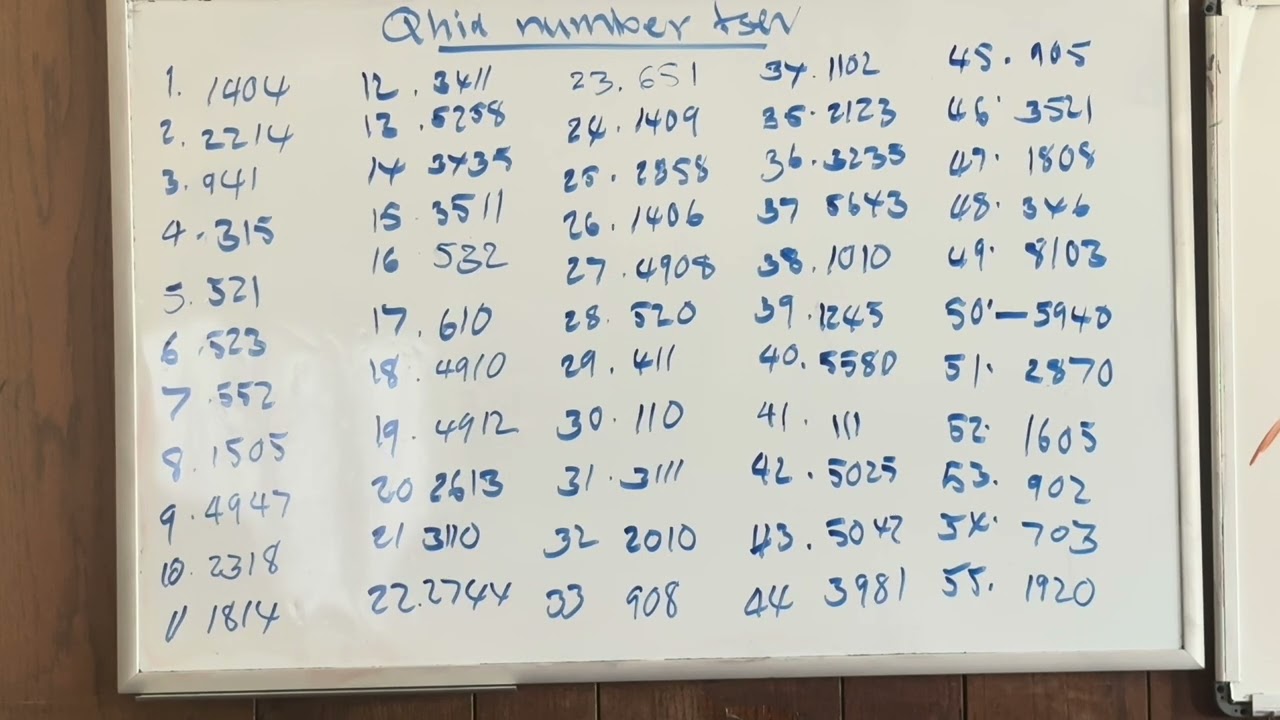 Qhia number tsev
1. 1404
2. 2214
3. 941
4. 315
5. 521
6. 523
7. 552
8. 1505
9. 4947
10. 2318
11 1814
12. 3411
13. 5258
14 3435
15. 3511
16 532
17. 610
18. 4910
19. 4912
20 2613
21 3110
22. 2744
23. 651
24. 1409
25. 2358
26. 1406
27. 4908
28. 520
29. 411
30. 110
31. 3111
32 2010
33 908
34. 1102
35. 2123
36. 3235
37 5643
38. 1010
39. 1245
40. 5580
41. 111
42. 5025
43. 5042
44 3981
45. 905
46. 3521
47. 1808
48. 346
49. 8103
50. — 5940
51. 2870
52. 1605
53. 902
54. 703
55. 1920